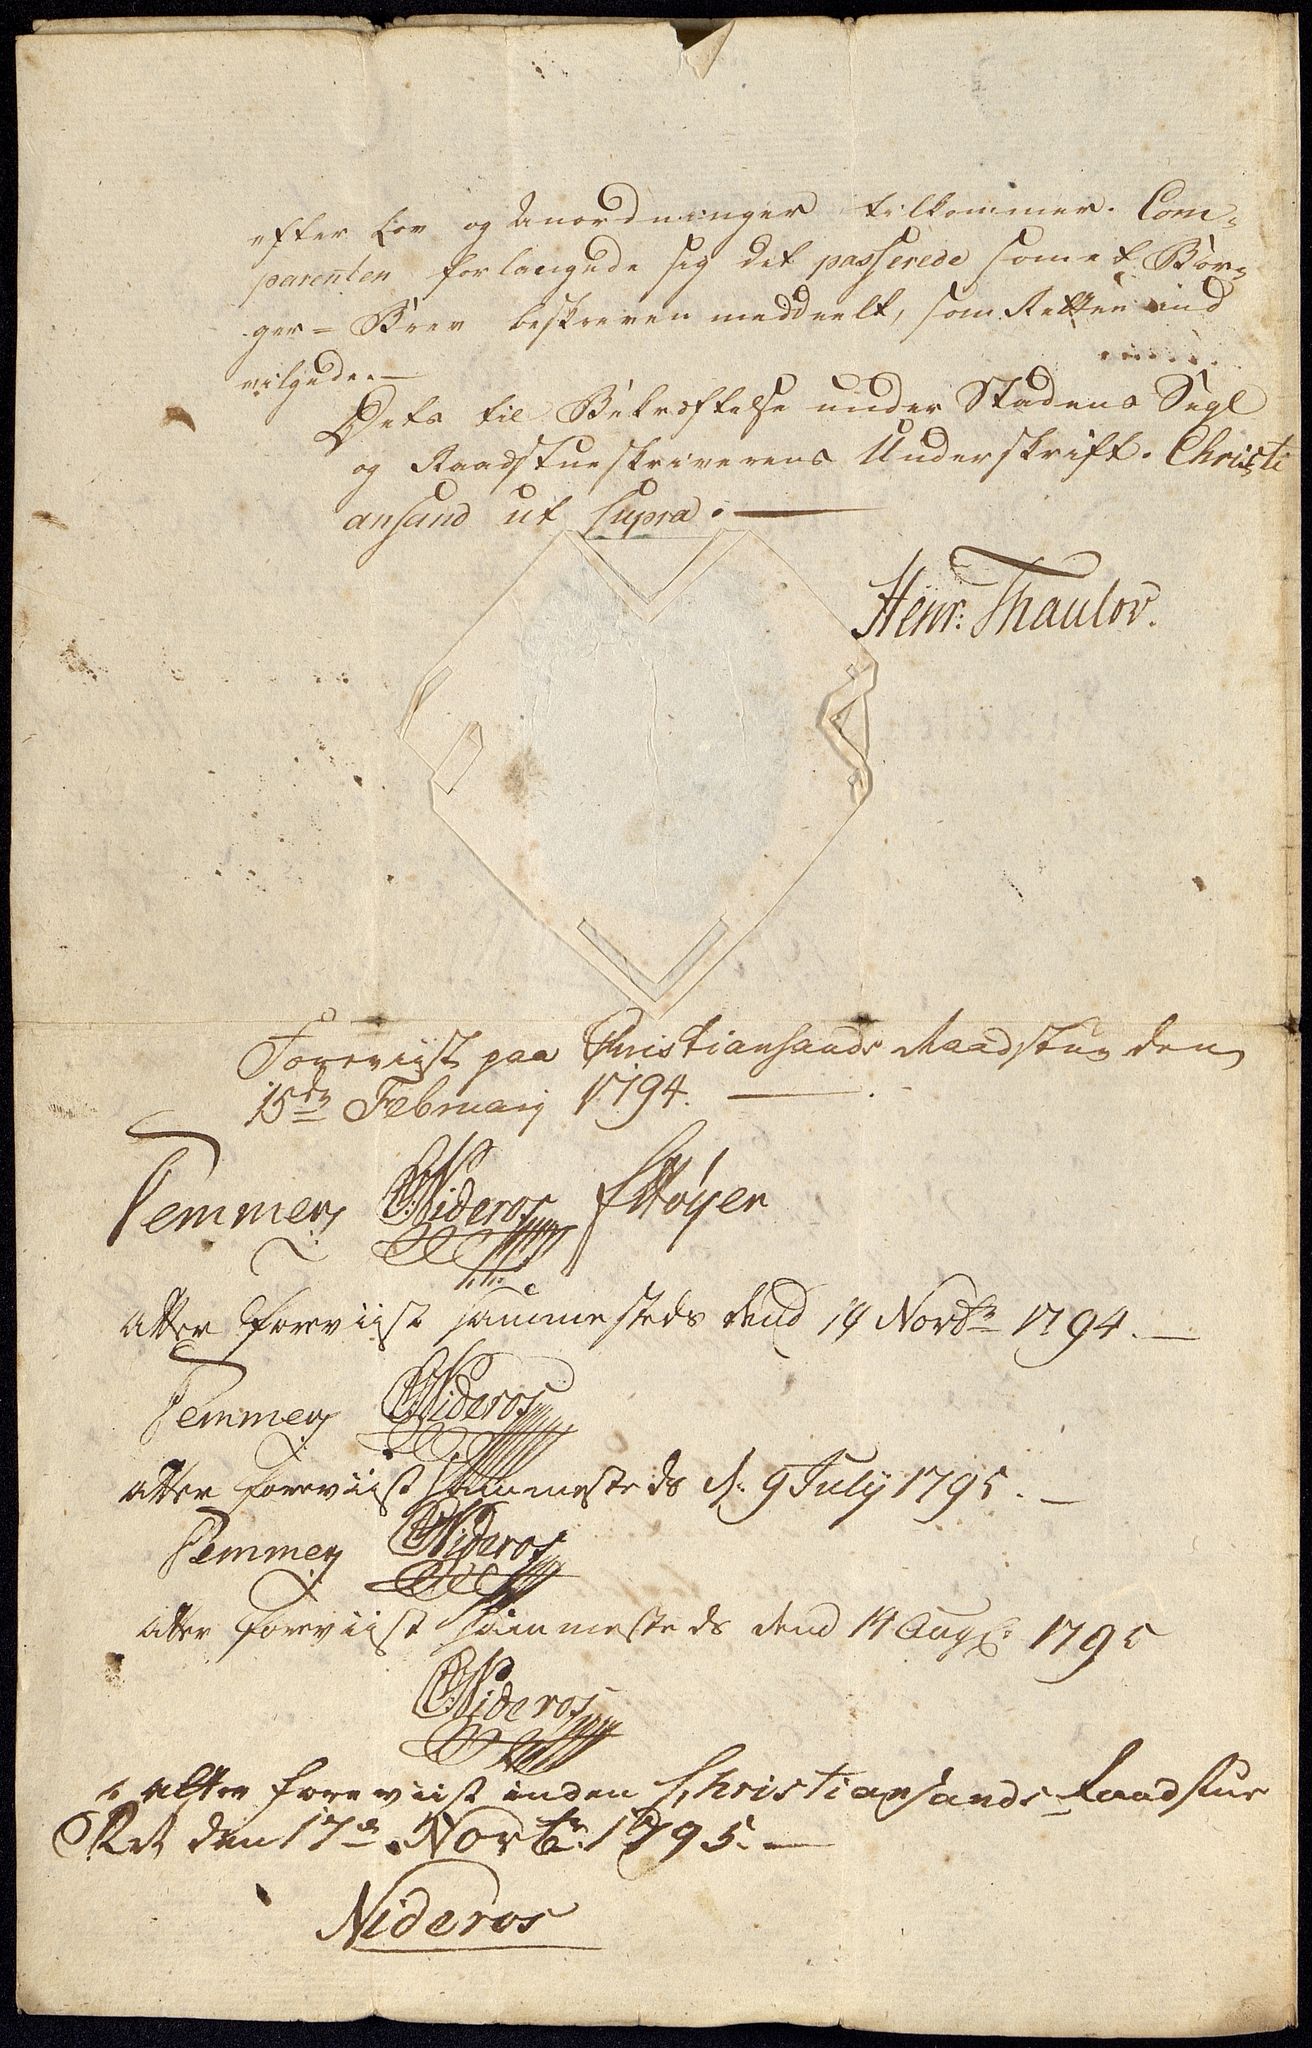 efter Lov og Anordninger tilkommer. Com-
parenten forlangede sig det passerede som et Bor-
ger-Brev beskreven meddeelt, som Retten ind
vilgede.—
Dets til Bekræftelse under Stadens Segl
og Raadstueskriverens Underskrift. Christi
ansand ut supra.—
Henr: Thaulov.
Foreviist paa Christiansands Raadstue den
15de Februarij 1794.—
Temmer Nideros Høyer
Atter foreviist sammesteds dend 14 Novbr 1794.—
Temmer Nideros
Atter foreviist sammesteds d. 9 July 1795.—
Temmer Nideros
Atter foreviist sammesteds dend 14 Aug: 1795
Nideros
Atter foreviist inden Christiansands Raadstue
Ret den 17de Novbr: 1795.—
Nideros